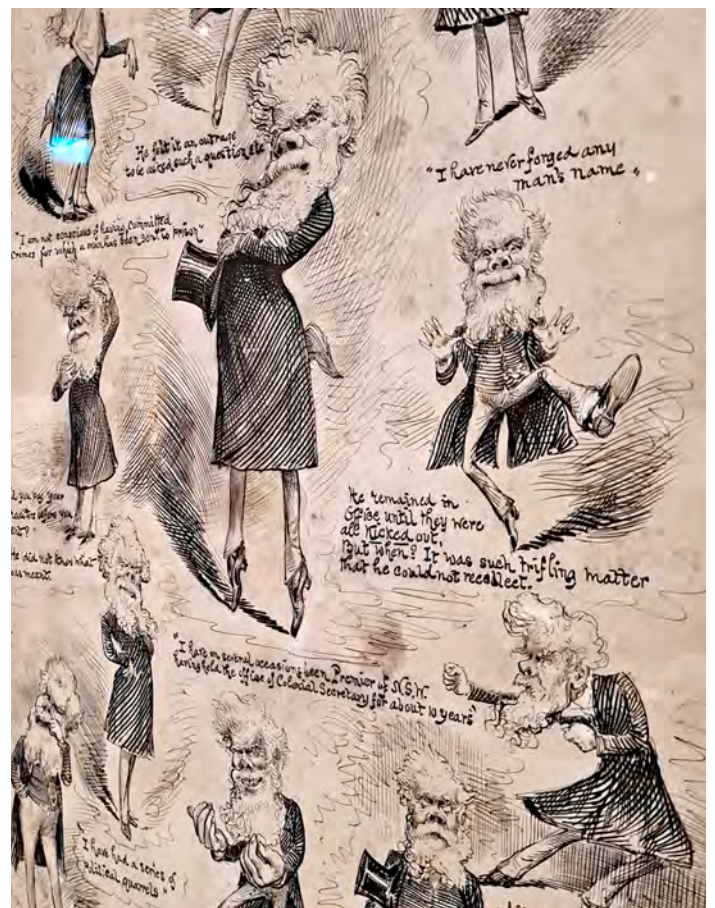 He felt it an outrage
to be asked such a question &c
"I have never forged any
man's name "
"I am not conscious of having committed
crimes for which a man has been sent to prison"
your
before you
He remained in
Office until they were
all Kicked out.
But when? It was such trifling matter
that he could not recollect.
He did not know what
was meant.
"I have on several occasions been Premier of N.S.W.
having held the office of Colonial Secretary for about 10 years"
"I have had a series of
political quarrels"